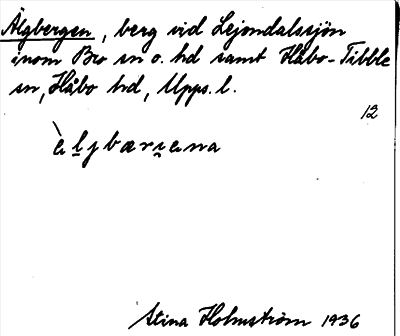 Älgbergen, berg vid Lejondalssjön
inom Bro sn o. hd samt Håbo-Tibble
sn, Håbo hd, Upps. l.
12
èljbærɩɛna
Stina Holmström 1936